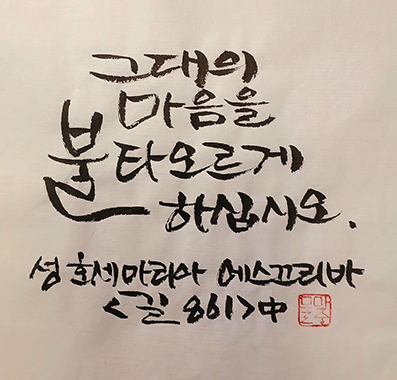 그대의
마음을
불타오르게
하십시오.
성 호세마리아 에스끄리바
<길 861>中